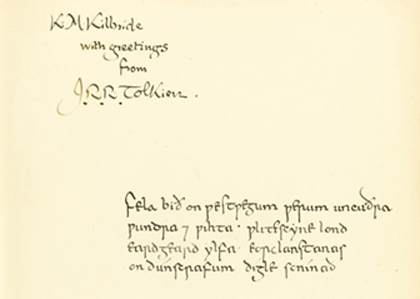 K.M.Kilbride
with greetings
from
J.R.R.Tolkien.
Fela bið on ƿestƿegum ƿerum uncuðra
ƿundra ⁊ ƿihta · ƿlitescyne lond
eardgeard ylfa · eorclanstanas
on dúnscrafum digle scínað